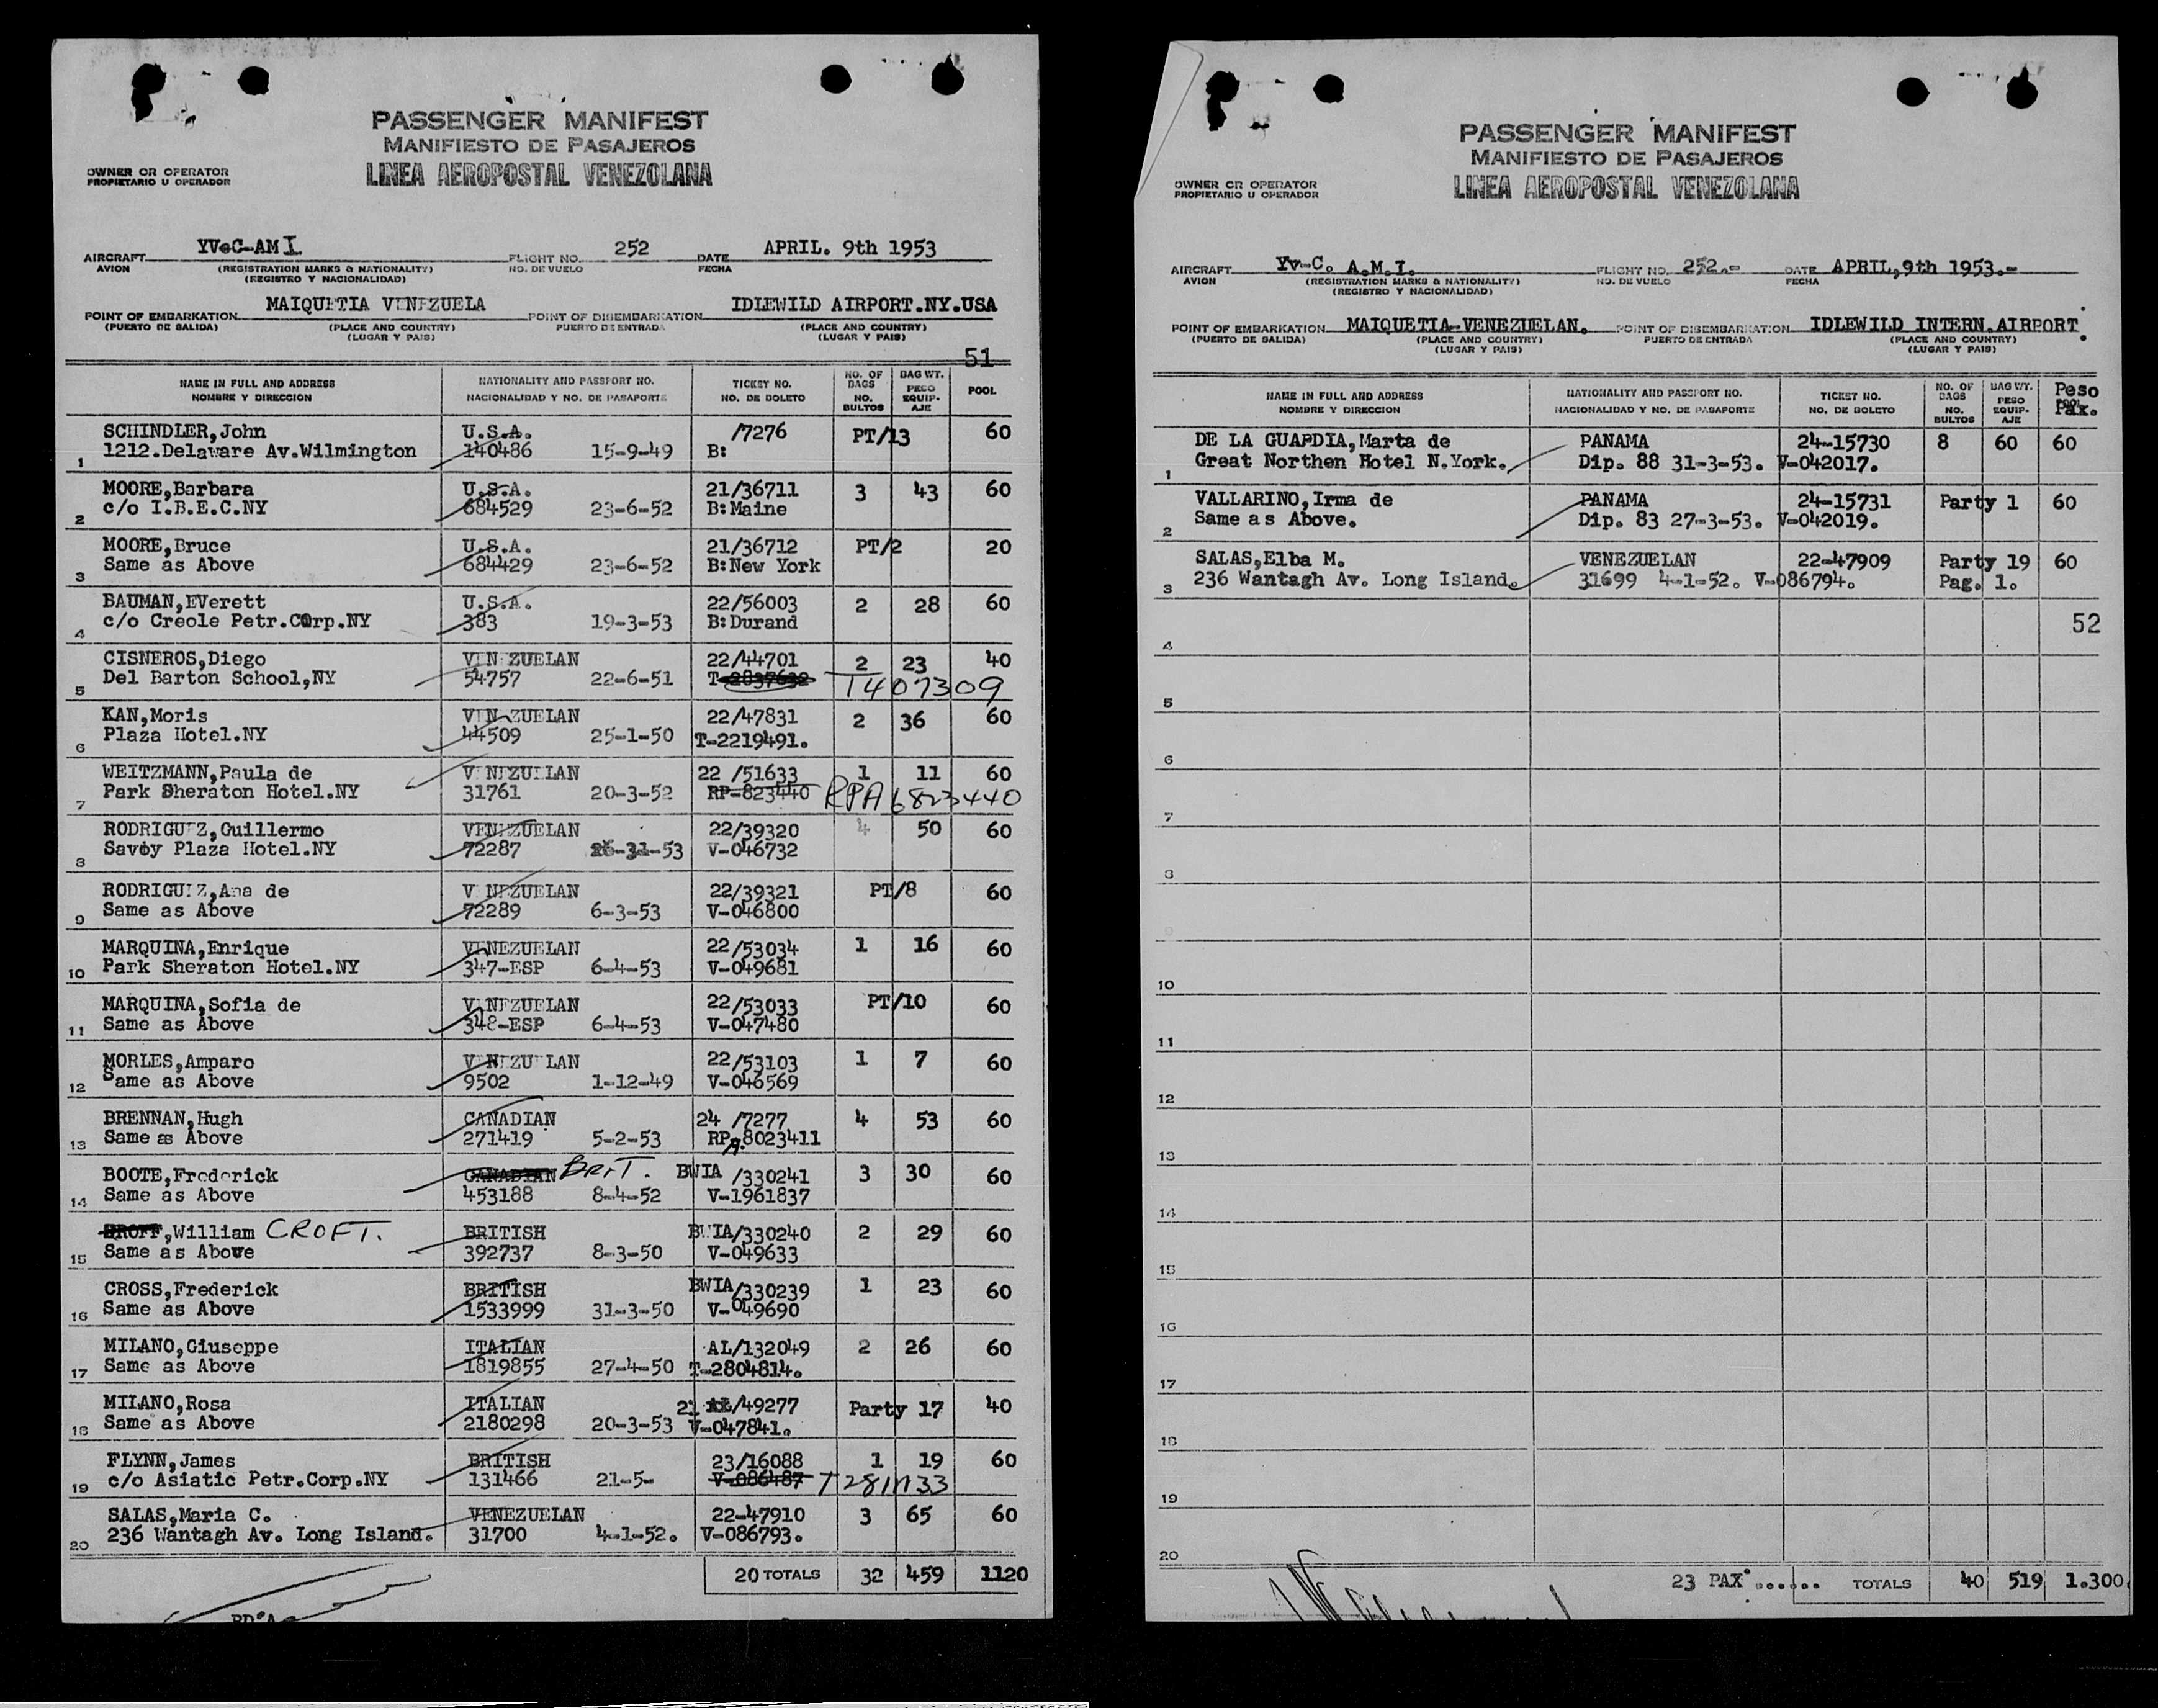 PASSENGER MANIFEST
MANIFIESTO DE PASAJEROS
OWNER OR OPERATOR
PROPIETARIO U OPERADOR
LINEA AEROPOSTAL VENEZOLANA
AIRCRAFT YV-C-AMI FLIGHT NO. 252 DATE APRIL. 9th 1953
AVION (REGISTRATION MARKS & NATIONALITY) NO. DE VUELO FECHA
(REGISTRO Y NACIONALIDAD)
POINT OF EMBARKATION MAIQUETIA VENEZUELA POINT OF DISEMBARKATION IDLEWILD AIRPORT.NY.USA
(PUERTO DE SALIDA) (PLACE AND COUNTRY) PUERTO DE ENTRADA (PLACE AND COUNTRY)
(LUGAR Y PAIS) (LUGAR Y PAIS)
51
NAME IN FULL AND ADDRESS NATIONALITY AND PASSPORT NO. TICKET NO. NO. OF BAGS BAG WT. POOL
NOMBRE Y DIRECCION NACIONALIDAD Y NO. DE PASAPORTE NO. DE BOLETO NO. BULTOS PESO EQUIP-AJE
SCHINDLER,John U.S.A. /7276 PT/13 60
1 1212.Delaware Av.Wilmington 140486 15-9-49 B:
MOORE,Barbara U.S.A. 21/36711 3 43 60
2 c/o I.B.E.C.NY 684529 23-6-52 B:Maine
MOORE,Bruce U.S.A. 21/36712 PT/2 20
3 Same as Above 684429 23-6-52 B:New York
BAUMAN,EVerett U.S.A. 22/56003 2 28 60
4 c/o Creole Petr.COrp.NY 383 19-3-53 B:Durand
CISNEROS,Diego VENEZUELAN 22/44701 2 23 40
5 Del Barton School,NY 54757 22-6-51 T-2837632 T407309
KAN,Moris VENEZUELAN 22/47831 2 36 60
6 Plaza Hotel.NY 44509 25-1-50 T-2219491.
WEITZMANN,Paula de VENEZUELAN 22 /51633 1 11 60
7 Park Sheraton Hotel.NY 31761 20-3-52 RP-823440 RPA6823440
RODRIGUEZ,Guillermo VENEZUELAN 22/39320 4 50 60
8 Savoy Plaza Hotel.NY 72287 -53 V-046732
RODRIGUEZ,Ana de VENEZUELAN 22/39321 PT/8 60
9 Same as Above 72289 6-3-53 V-046800
MARQUINA,Enrique VENEZUELAN 22/53034 1 16 60
10 Park Sheraton Hotel.NY 347-ESP 6-4-53 V-049681
MARQUINA,Sofia de VENEZUELAN 22/53033 PT/10 60
11 Same as Above 348-ESP 6-4-53 V-047480
MORLES,Amparo VENEZUELAN 22/53103 1 7 60
12 Same as Above 9502 1-12-49 V-046569
BRENNAN,Hugh CANADIAN 24 /7277 4 53 60
13 Same as Above 271419 5-2-53 RPA.8023411
BOOTE,Frederick CANADIAN BRIT. BWIA /330241 3 30 60
14 Same as Above 453188 8-4-52 V-1961837
,William CROFT. BRITISH BWIA/330240 2 29 60
15 Same as Above 392737 8-3-50 V-049633
CROSS,Frederick BRITISH BWIA/330239 1 23 60
16 Same as Above 1533999 31-3-50 V-049690
MILANO,Giuseppe ITALIAN AL/132049 2 26 60
17 Same as Above 1819855 27-4-50 T-2804814.
MILANO,Rosa ITALIAN 21 /49277 Party 17 40
18 Same as Above 2180298 20-3-53 V-047841.
FLYNN,James BRITISH 23/16088 1 19 60
19 c/o Asiatic Petr.Corp.NY 131466 21-5- V-086487
SALAS,Maria C. VENEZUELAN 22-47910 3 65 60
20 236 Wantagh Av. Long Island. 31700 4-1-52. V-086793.
20 TOTALS 32 459 1120
PASSENGER MANIFEST
MANIFIESTO DE PASAJEROS
OWNER OR OPERATOR
PROPIETARIO U OPERADOR
LINEA AEROPOSTAL VENEZOLANA
AIRCRAFT Yv-C. A.M.I. FLIGHT NO. 252.- DATE APRIL,9th 1953.-
AVION (REGISTRATION MARKS & NATIONALITY) NO. DE VUELO FECHA
(REGISTRO Y NACIONALIDAD)
POINT OF EMBARKATION MAIQUETIA-VENEZUELAN. POINT OF DISEMBARKATION IDLEWILD INTERN.AIRPORT.
(PUERTO DE SALIDA) (PLACE AND COUNTRY) PUERTO DE ENTRADA (PLACE AND COUNTRY)
(LUGAR Y PAIS) (LUGAR Y PAIS)
NAME IN FULL AND ADDRESS NATIONALITY AND PASSPORT NO. TICKET NO. NO. OF BAGS BAG WT. Peso POOL Pax.
NOMBRE Y DIRECCION NACIONALIDAD Y NO. DE PASAPORTE NO. DE BOLETO NO. BULTOS PESO EQUIP-AJE
DE LA GUARDIA,Marta de PANAMA 24-15730 8 60 60
1 Great Northen Hotel N.York. Dip. 88 31-3-53. V-042017.
VALLARINO,Irma de PANAMA 24-15731 Party 1 60
2 Same as Above. Dip. 83 27-3-53. V-042019.
SALAS,Elba M. VENEZUELAN 22-47909 Party 19 60
3 236 Wantagh Av. Long Island. 31699 4-1-52. V-086794. Pag. 1.
52
4
5
6
7
8
9
10
11
12
13
14
15
16
17
18
19
20
23 PAX...... TOTALS 40 519 1.300.